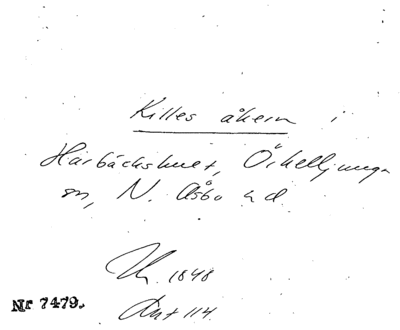 Killes åkern i
Harbäckshult, Örkelljunga
sn, N. Åsbo hd
1848
Ant 114
Nr 7479.